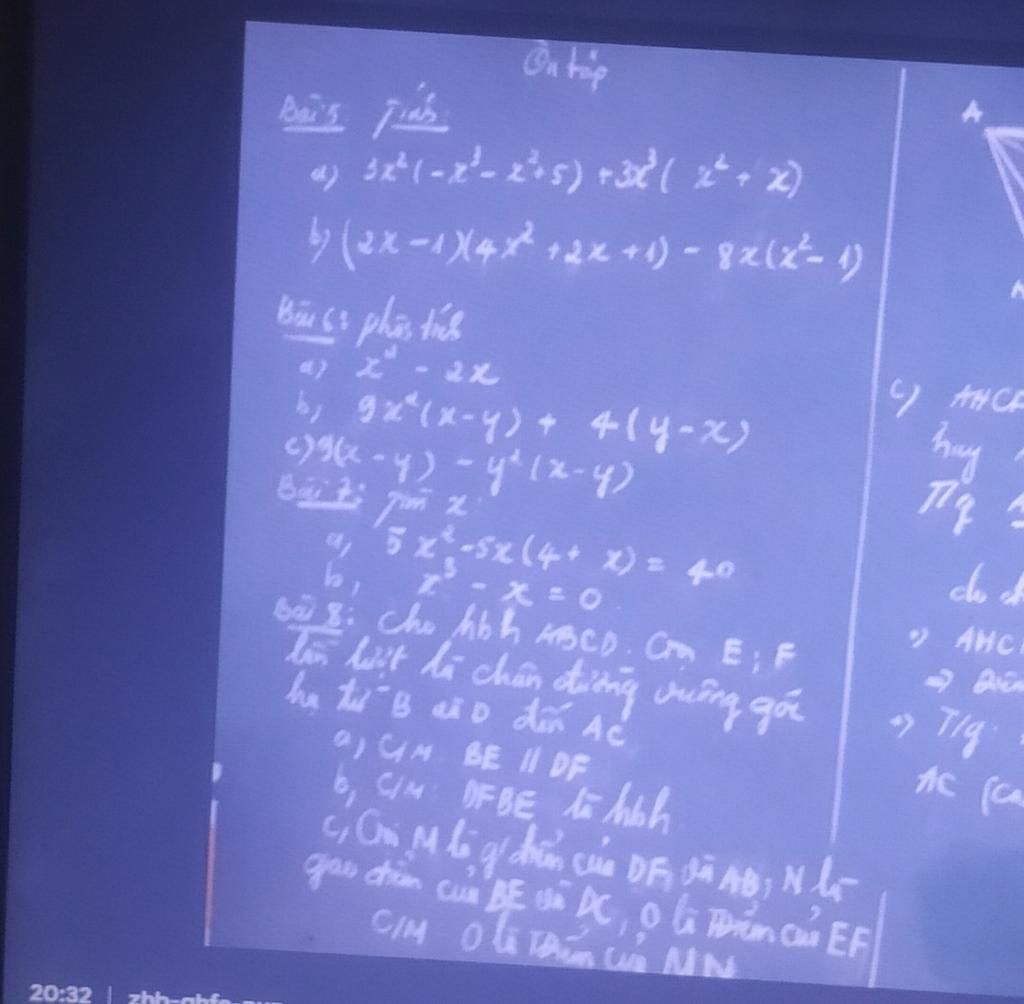 Ôn tập
Bài 5 Tính:
a) 3x²(-x³ - x² + 5) + 3x³( x² + x)
b) (2x - 1)(4x² + 2x + 1) - 8x(x² - 1)
Bài 6: phân tích
a) x² - 2x
b, 9x²(x - y) + 4(y - x)
c) 9(x - y) - y²(x - y)
Bài 7: Tìm x:
a, 5x² - 5x(4 + x) = 40
b, x³ - x = 0
Bài 8: Cho hbh ABCD. Gọi E; F
lần lượt là chân đường vuông góc
hạ từ B và D đến AC
a, C/M BE // DF
b, C/M: DFBE là hbh
c, Gọi M là g/điểm của DF và AB; N là
giao điểm của BE và DC, O là Tđiểm của EF
C/M O là Tđiểm của MN
A
c) AHCF
hay
T/g
do
AHC
=>
=> T/g
AC
20:32